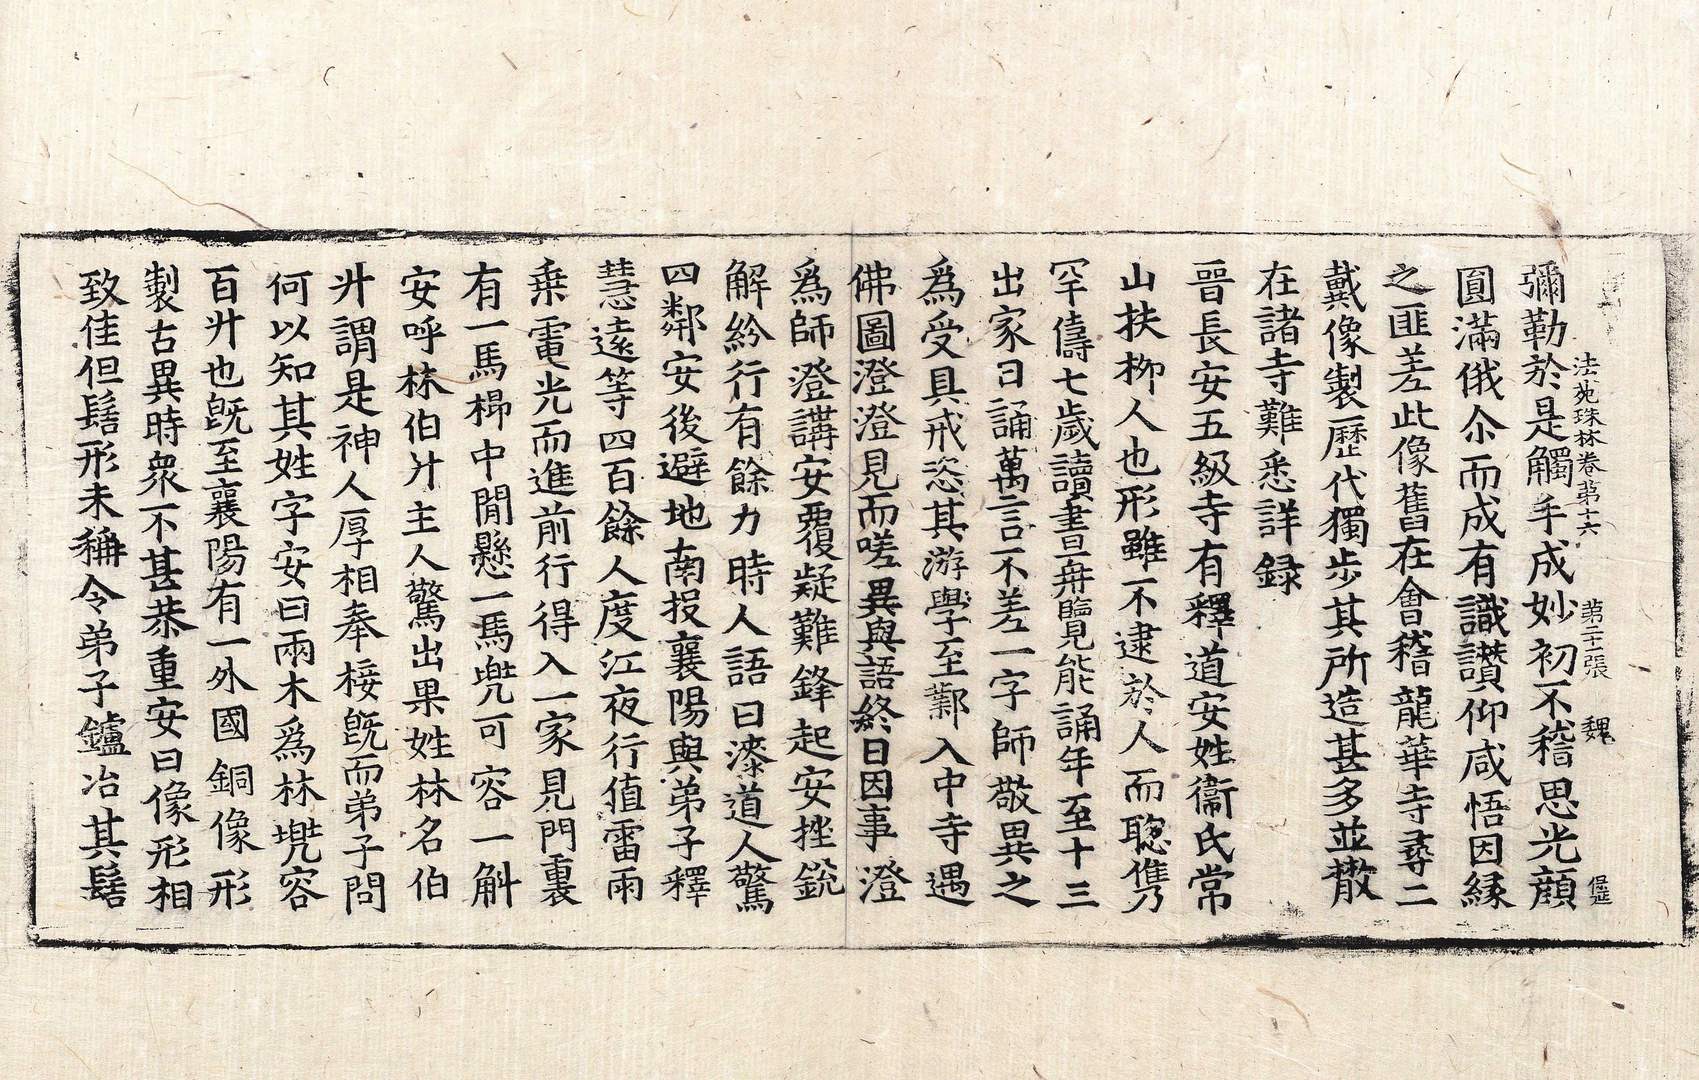 法苑珠林卷第十六 第二十二張 魏
彌勒於是觸手成妙初不稽思光顔
圓滿俄尒而成有識讃仰咸悟因緣
之匪差此像舊在會稽龍華寺尋二
戴像製歷代獨步其所造甚多並散
在諸寺難悉詳録
晉長安五級寺有釋道安姓衞氏常
山扶柳人也形雖不逮於人而聰儁
罕儔七歲讀書再覽能誦年至十三
出家日誦萬言不差一字師敬異之
爲受具戒恣其游學至鄴入中寺遇
佛圖澄澄見而嗟異與語終日因事澄
爲師澄講安覆疑難鋒起安挫銳
解紛行有餘力時人語曰漆道人驚
四鄰安後避地南投襄陽與弟子釋
慧遠等四百餘人度江夜行值雷雨
乗電光而進前行得入一家見門裏
有一馬㭿中閒懸一馬兠可容一斛
安呼林伯升主人驚出果姓林名伯
升謂是神人厚相奉接旣而弟子問
何以知其姓字安曰兩木爲林兠容
百升也旣至襄陽有一外國銅像形
製古異時衆不甚恭重安曰像形相
致佳但髻形未稱令弟子鑪冶其髻